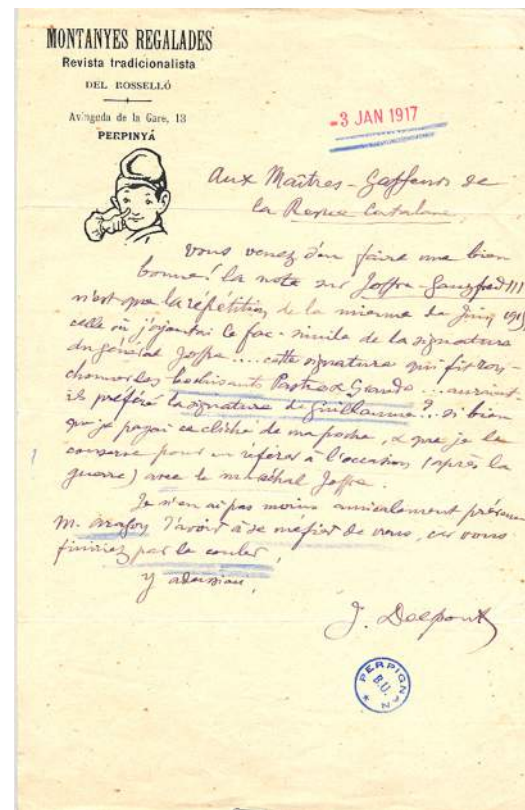 MONTANYES REGALADES
Revista tradicionalista
DEL ROSSELLÓ
Avinguda de la Gare, 13
PERPINYÁ
-3 JAN 1917
Aux Maîtres-Gaffeurs de
la Revue Catalane.
vous venez d'en faire une bien
bonne! la note sur Joffre-Gauzfred III
n'est que la répétition de la mienne de Juin 1915
celle où j'ajoutai le fac-simile de la signature
du général Joffre.... cette signature qui fit
les Pastre & Grando... auraient-
ils préféré la signature de Guillaume?.. si bien
que je payai ce cliché de ma poche, & que je le
conserve pour en référer à l'occasion (après la
guerre) avec le maréchal Joffre.
Je n'en ai pas moins amicalement prévenu
M. Aragon d'avoir à se méfier de vous, car vous
finiriez par le couler.
Y adussiau,
J. Delpont
PERPIGNAN
B.U.